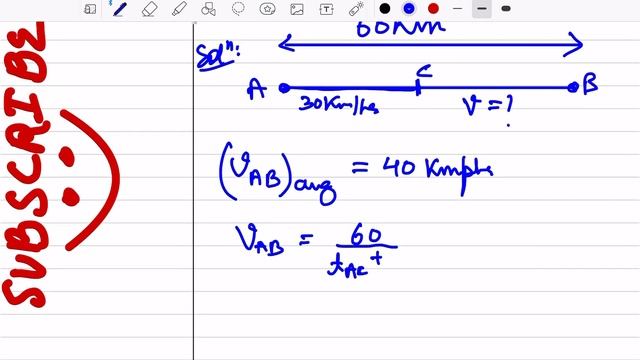 SUBSCRIBE
60Km
Solⁿ:
A C B
30Km/hr V = ?
(V_AB)avg = 40 Kmph
V_AB = 60 / t_AC +